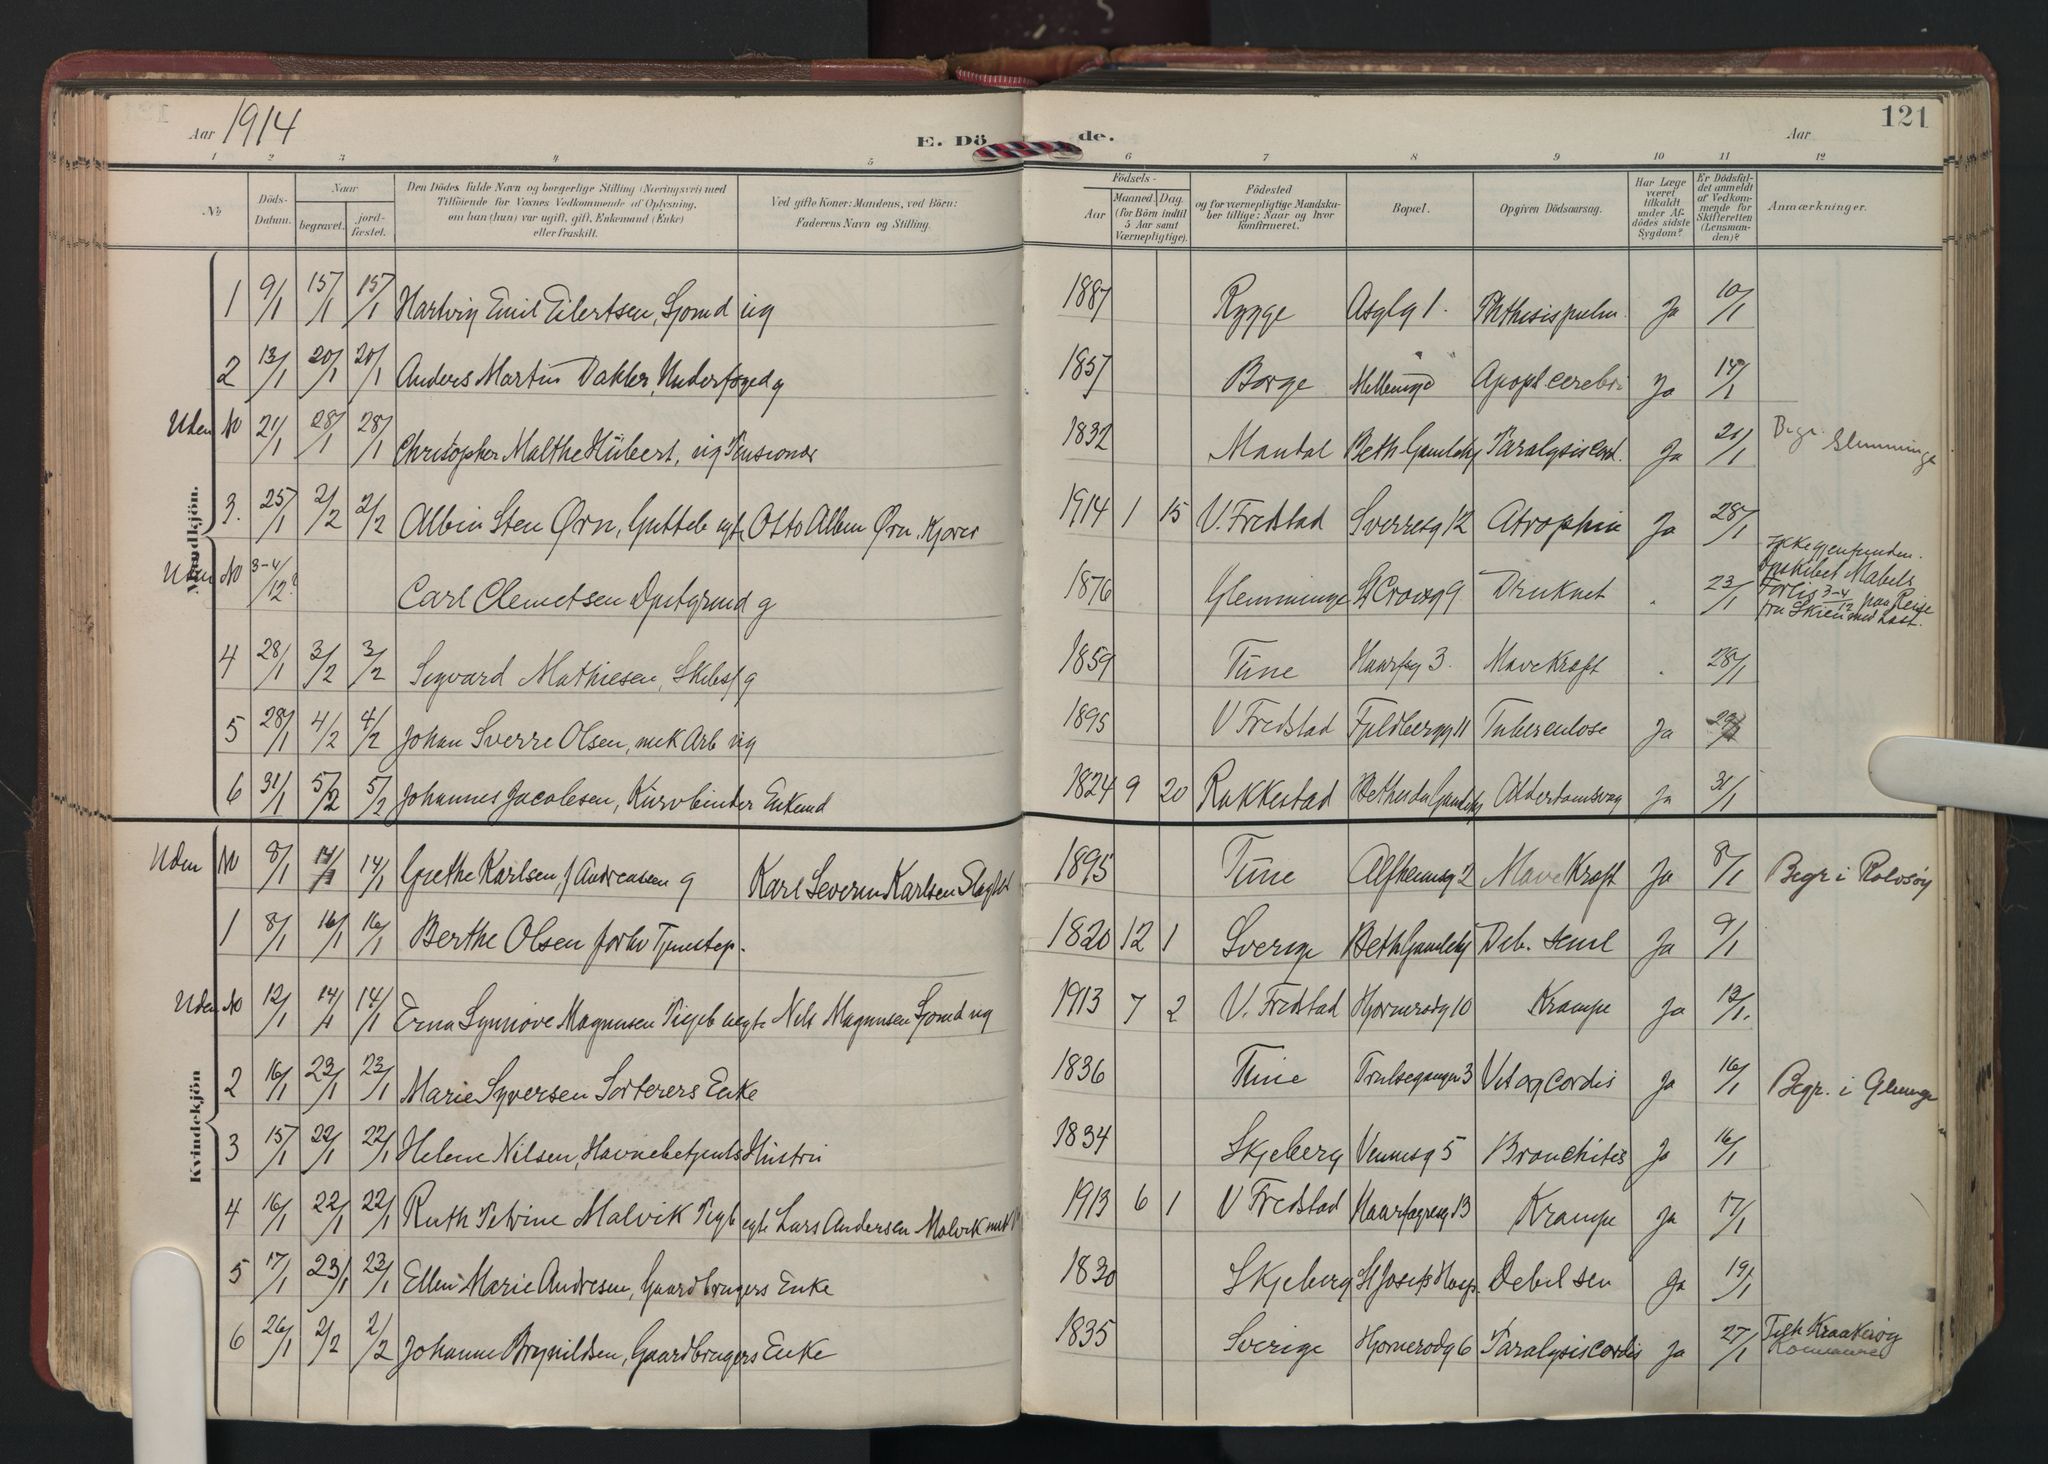 121
Aar 1914
E. Dö de.
Aar
1 2 3 4 5 6 7 8 9 10 11 12
No
Döds-Datum.
Naar
begravet.
jord-fæstet.
Den Dödes fulde Navn og borgerlige Stilling (Næringsvei) med
Tilföiende for Voxnes Vedkommende af Oplysning,
om han (hun) var ugift, gift, Enkemand (Enke)
eller fraskilt.
Ved gifte Koner: Mandens, ved Börn:
Faderens Navn og Stilling.
Födsels-
Aar
Maaned Dag
(for Börn indtil
5 Aar samt
Værnepligtige).
Födested
og for værnepligtige Mandska-
ber tillige: Naar og hvor
konfirmeret.
Bopæl.
Opgiven Dödsaarsag.
Har Læge
været
tilkaldt
under Af-
dödes sidste
Sygdom?
Er Dödsfal-
det anmeldt
af Vedkom-
mende for
Skifteretten
(Lensman-
den)?
Anmærkninger.
Mandkjön.
1 9/1 15/1 15/1 Hartvig Emil Eilertsen, Sjömd ug 1887 Rygge Asylg 1. Phthisis pulm. Ja 10/1
2 13/1 20/1 20/1 Anders Martin Dakler, Underfoged g 1857 Borge Apopl cerebri Ja 14/1
Uden No 21/1 28/1 28/1 Christopher Malthe Hübert, ug Pensionær 1832 Mandal Beth Gamlehj Paralysis cord. Ja 21/1 Begr. Glemminge
3. 25/1 2/2 2/2 Albin Sten Ørn, Gutteb egte Otto Albin Ørn, Kjører 1914 1 15 V. Fredstad Sverresg 12 Atrophia Ja 28/1
Uden No 3-4/12? Carl Clemetsen g 1876 Glemminge St Croixg 9 Druknet . 23/1 Ikke gjenfunden. Skibet Mabels Forlis 3-4/12 paa Reise fra Skien med Last.
4 28/1 3/2 3/2 Sigvard Mathiesen, Skibsf g 1859 Tune Haarfg 3. Mavekræft . 28/1
5 28/1 4/2 4/2 Johan Sverre Olsen, mek Arb ug 1895 V Fredstad Fjeldbergg 11 Tuberculose Ja
6 31/1 5/2 5/2 Johannes Jacobsen, Kurvbinder Enkemd 1824 9 20 Rakkestad Bethesda Gamlehj Alderdomssvag Ja 31/1
Kvindekjön
Uden No 8/1 14/1 14/1 Grethe Karlsen, f Andreassen g Karl Severin Karlsen 1895 Tune Alfheimsg 2 Mavekræft Ja 8/1 Begr i Rolvsøy
1 8/1 16/1 16/1 Berthe Olsen forhv Tjenestep. 1820 12 1 Sverige Beth Gamlehj Deb. senil Ja 9/1
Uden No 12/1 14/1 14/1 Erna Synnøve Magnusen Pigeb uegte Nils Magnusen Sjømd ug 1913 7 2 V. Fredstad Hjørnerødg 10 Krampe Ja 13/1.
2 16/1 23/1 23/1 Marie Syversen Sorterers Enke 1836 Tune Trulsegangen 3 Vit org cordis Ja 16/1 Begr. i Glemge
3 15/1 22/1 22/1 Helene Nilsen, Havnebetjents Hustru 1834 Skjeberg Vennesg 5 Bronchitis Ja 16/1
4 16/1 22/1 22/1 Ruth Petrine Malvik Pigb egte Lars Andersen Malvik 1913 6 1 V Fredstad Haarfagresg 13 Krampe Ja 17/1
5 17/1 23/1 23/1 Ellen Marie Andresen, Gaardbrugers Enke 1830 Skjeberg St Josefs Hosp. Debil sen Ja 19/1
6 26/1 2/2 2/2 Johanne Brynildsen, Gaardbrugers Enke 1835 Sverige Hjørnerødg 6 Paralysis cordis Ja 27/1 Tilh Kraakerøy Kommune